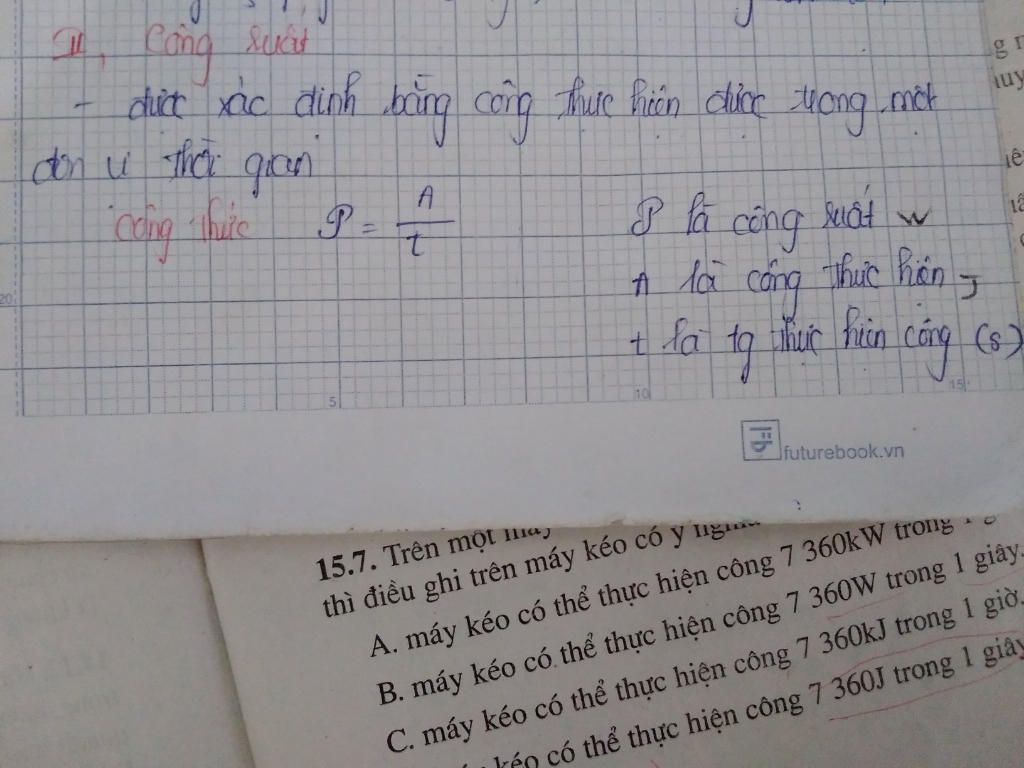 II, Công suất
- được xác định bằng công thực hiện được trong một
đơn vị thời gian
Công thức P = A / t
P là công suất W
A là công thực hiện J
t là tg thực hiện công (s)
20
5
10
15
futurebook.vn
15.7. Trên một máy
thì điều ghi trên máy kéo có ý nghĩa
A. máy kéo có thể thực hiện công 7 360kW trong 1
B. máy kéo có thể thực hiện công 7 360W trong 1 giây.
C. máy kéo có thể thực hiện công 7 360kJ trong 1 giờ.
kéo có thể thực hiện công 7 360J trong 1 giây